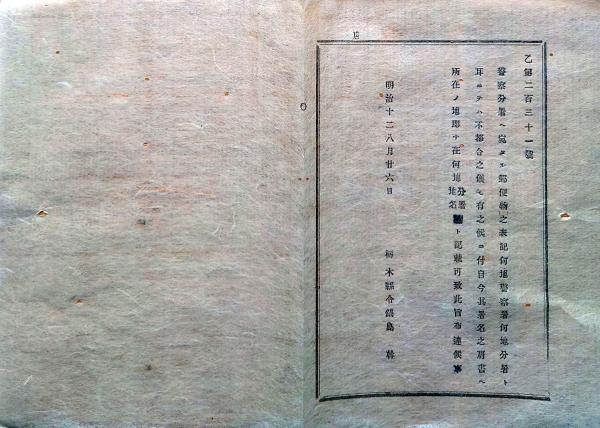 乙第二百三十一號
警察分署ヘ宛タル郵便物之表記何地警察署何地分署ト
耳ニテハ不都合之儀モ有之候ニ付自今其署名之肩書ヘ
所在ノ地即チ在何地何地分署地名ト記載可致此旨布達候事
明治十二八月廿六日
栃木縣令鍋島 幹